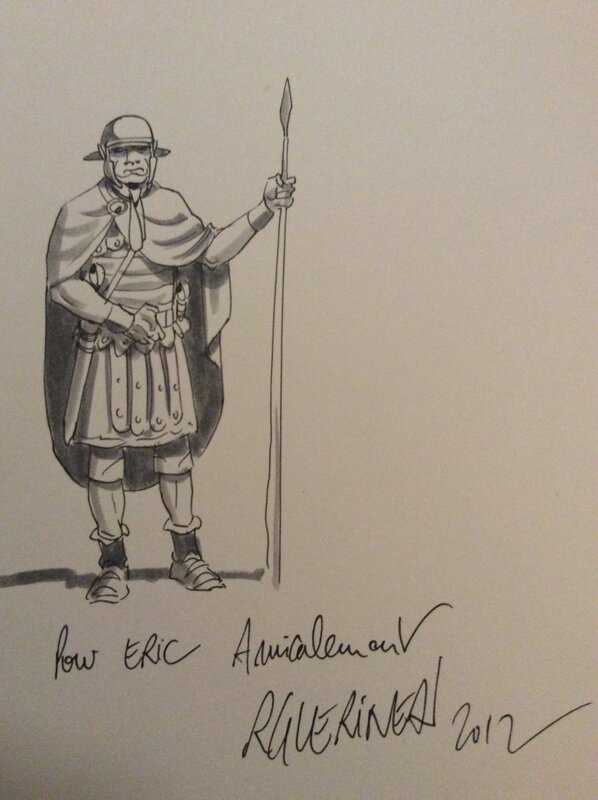 Pour ERIC Amicalement
RGUERINEAU 2012